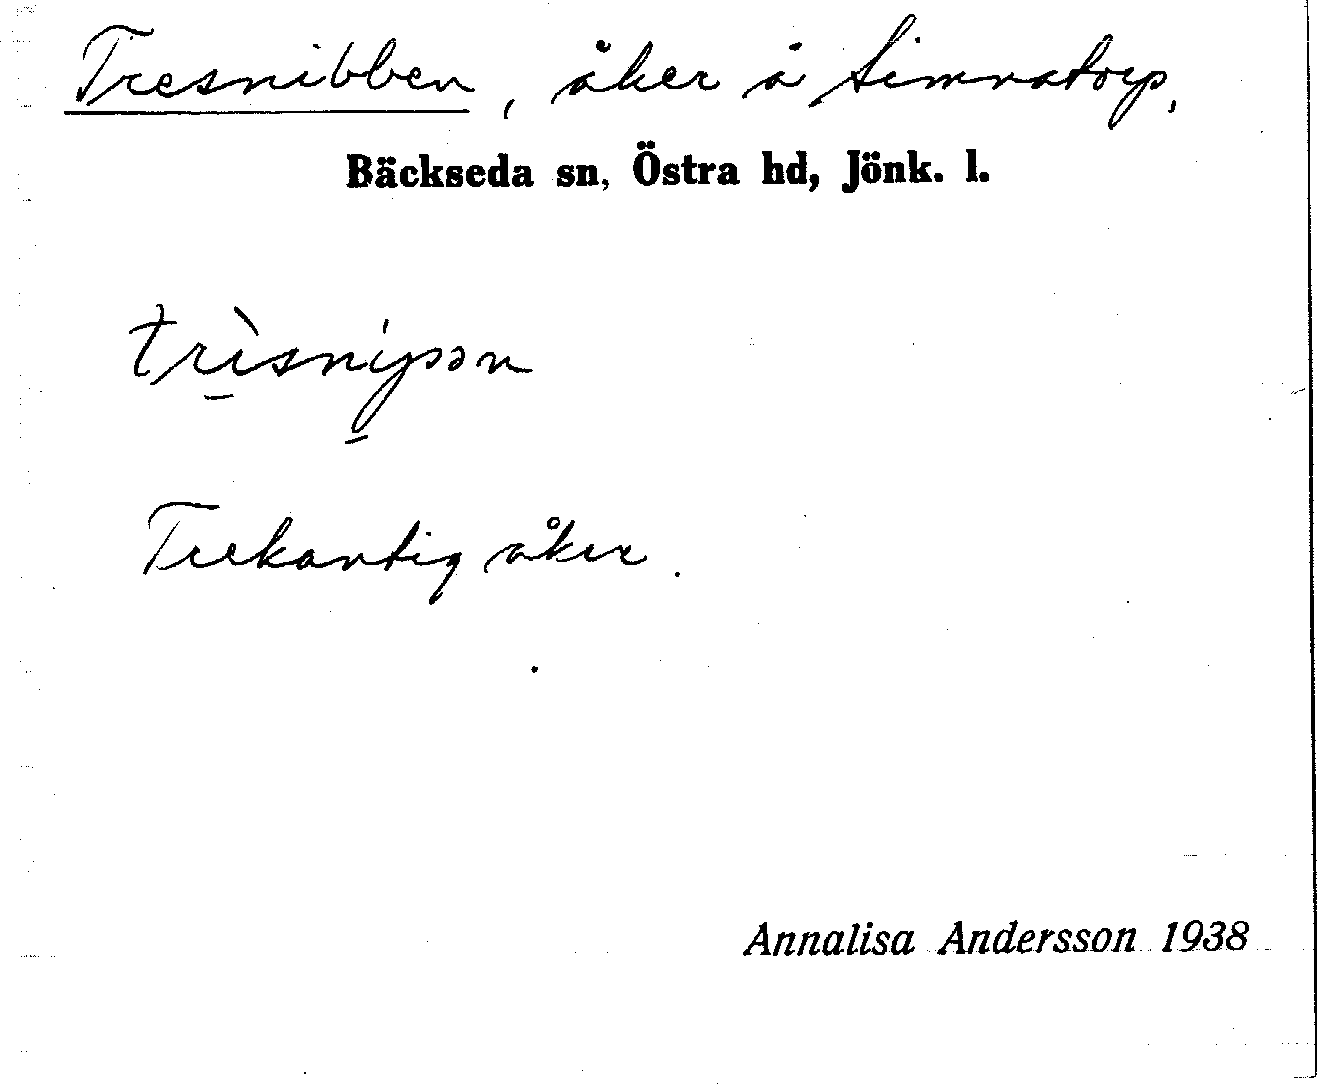 Tresnibben, åker å Simnatorp,
Bäckseda sn, Östra hd, Jönk. l.
Trekantig åker.
Annalisa Andersson 1938